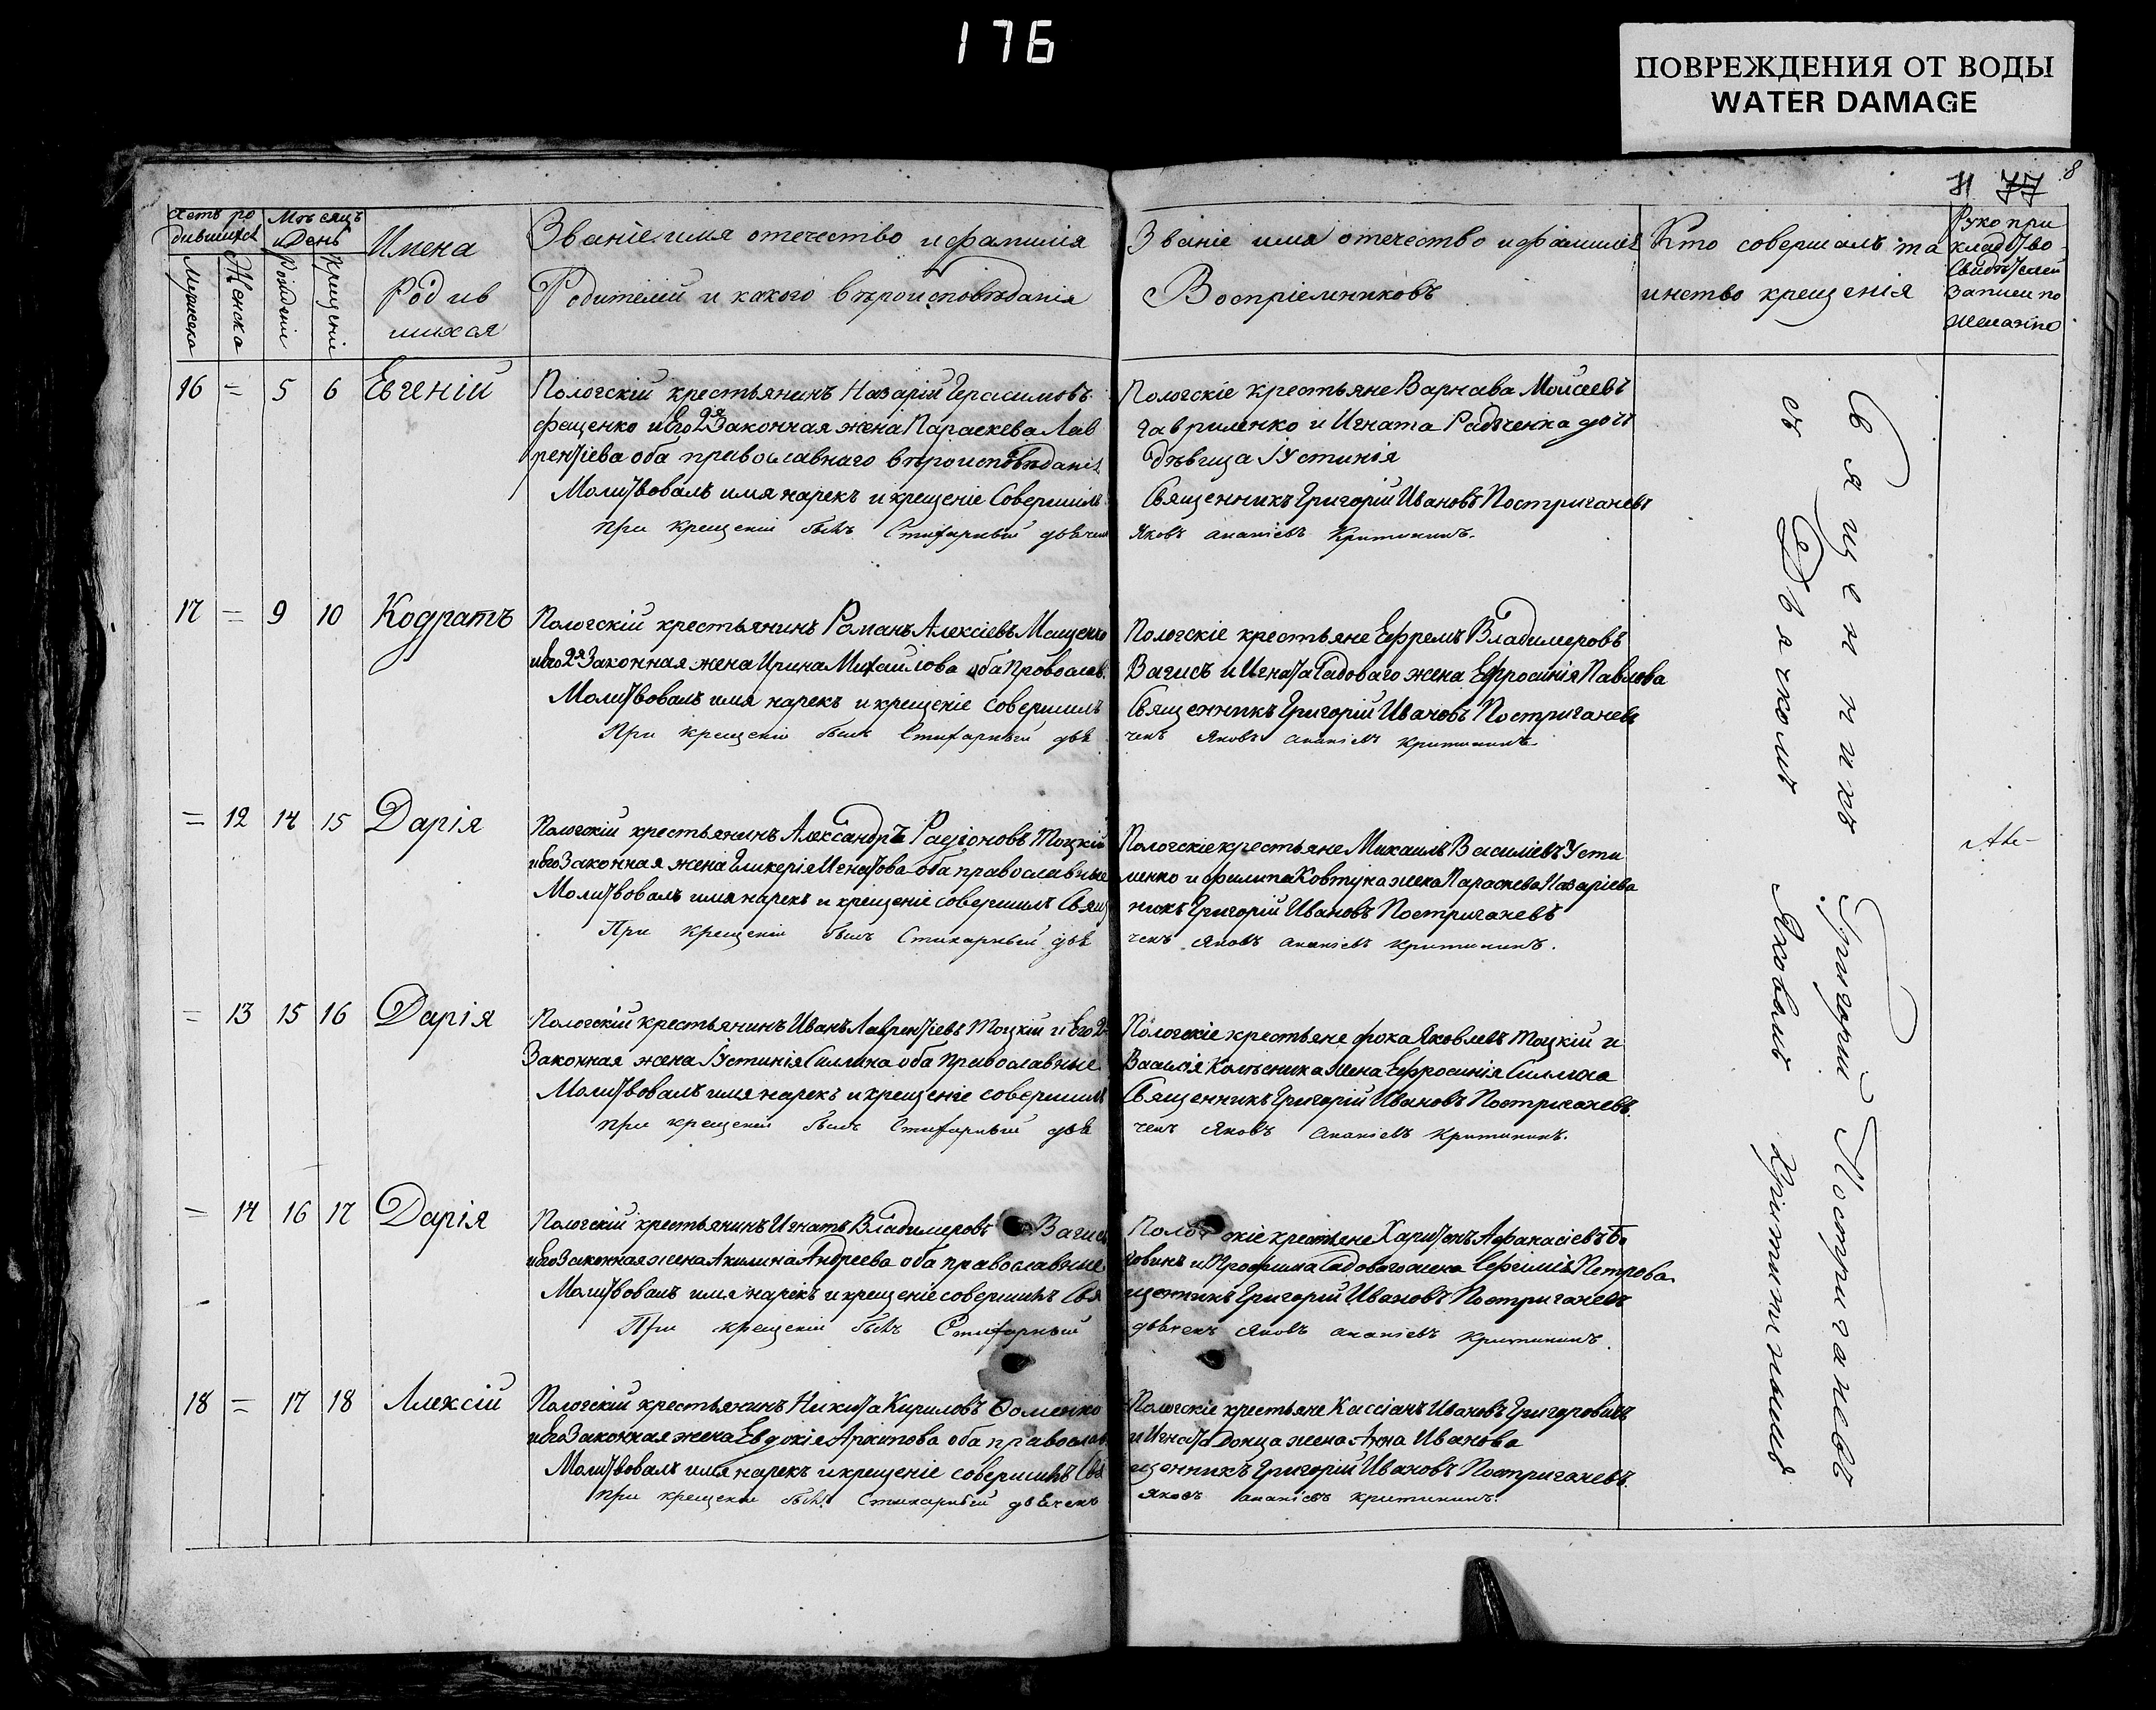 176
ПОВРЕЖДЕНИЯ ОТ ВОДЫ
WATER DAMAGE
Счетъ ро
дившихся
Мѣсяцъ
и День
Мужеска
Женска
Рожденія
Крещенія
Имена
Родив
шихся
Званіе имя отечество и фамилія
Родителей и какого вѣроисповѣданія
Званіе имя отечество и фамилія
Воспріемниковъ
Кто совершалъ та
инство крещенія
Рукопри
кладство
Свидѣтелей
Записи по
желанію
77
8
16 = 5 6 Евгеній
Пологскій крестьянинъ Назарій Герасимовъ
Фещенко и Его 2я Законная жена Параскева Лав
рентіева оба православнаго вѣроисповѣданія
Молитвовалъ имя нарекъ и крещеніе Совершилъ
При крещеніи былъ Стихарный дьячекъ
Пологскіе крестьяне Варнава Моисеевъ
Гавриленко и Игната Радченка дочь
дѣвица Іустинія
Священникъ Григорій Ивановъ Постригачевъ
Яковъ Ананіевъ Критининъ.
17 = 9 10 Кодратъ
Пологскій крестьянинъ Романъ Алексіевъ Мащенко
и Его 2я Законная жена Ирина Михаилова оба Православ.
Молитвовалъ имя нарекъ и крещеніе совершилъ
При крещеніи былъ Стихарный дья
Пологскіе крестьяне Ефремъ Владимеровъ
Вагисъ и Игната Гадоваго жена Ефросинія Павлова
Священникъ Григорій Ивановъ Постригачевъ
чекъ Яковъ Ананіевъ Критининъ.
= 12 14 15 Дарія
Пологскій крестьянинъ Александръ Радіоновъ Тоцкій
и Его Законная жена Гликерія Игнатова оба православные
Молитвовалъ имя нарекъ и крещеніе совершилъ Свящ
При крещеніи былъ Стихарный дья
Пологскіе крестьяне Михаилъ Василіевъ Усти
менко и Филипа Ковтуна жена Параскева Назаріева
никъ Григорій Ивановъ Постригачевъ
чекъ Яковъ Ананіевъ Критининъ.
= 13 15 16 Дарія
Пологскій Крестьянинъ Иванъ Лаврентіевъ Тоцкій и Его 2я
Законная жена Іустинія Силина оба Православные
Молитвовалъ имя нарекъ и крещеніе совершилъ
При крещеніи былъ Стихарный дья
Пологскіе крестьяне Фока Яковлевъ Тоцкій и
Василія Колѣсника жена Ефросинія Силина
Священникъ Григорій Ивановъ Постригачевъ.
чекъ Яковъ Ананіевъ Критининъ.
= 14 16 17 Дарія
Пологскій крестьянинъ Игнатъ Владимеровъ Вагисъ
и Его Законная жена Акилина Андреева оба православные
Молитвовалъ имя нарекъ и крещеніе совершилъ Свя
При крещеніи былъ Стихарный
крестьяне Харитонъ Афанасіевъ
и Трофима Гадоваго жена Ефимія Петрова
щенникъ Григорій Ивановъ Постригачевъ
дьячекъ Яковъ Ананіевъ Критининъ.
18 = 17 18 Алексій
Пологскій крестьянинъ Никита Кириловъ Фоменко
и Его Законная жена Евдокія Архипова оба православ
Молитвовалъ имя нарекъ и крещеніе совершилъ Свя
При крещеніи былъ Стихарный дьячекъ
Пологскіе крестьяне Кассіанъ Ивановъ Григоровичъ
и Игната Донца жена Анна Иванова
щенникъ Григорій Ивановъ Постригачевъ.
Яковъ Ананіевъ Критининъ.
Священникъ Григорій Постригачевъ
съ Дьячкомъ Яковомъ Критининымъ